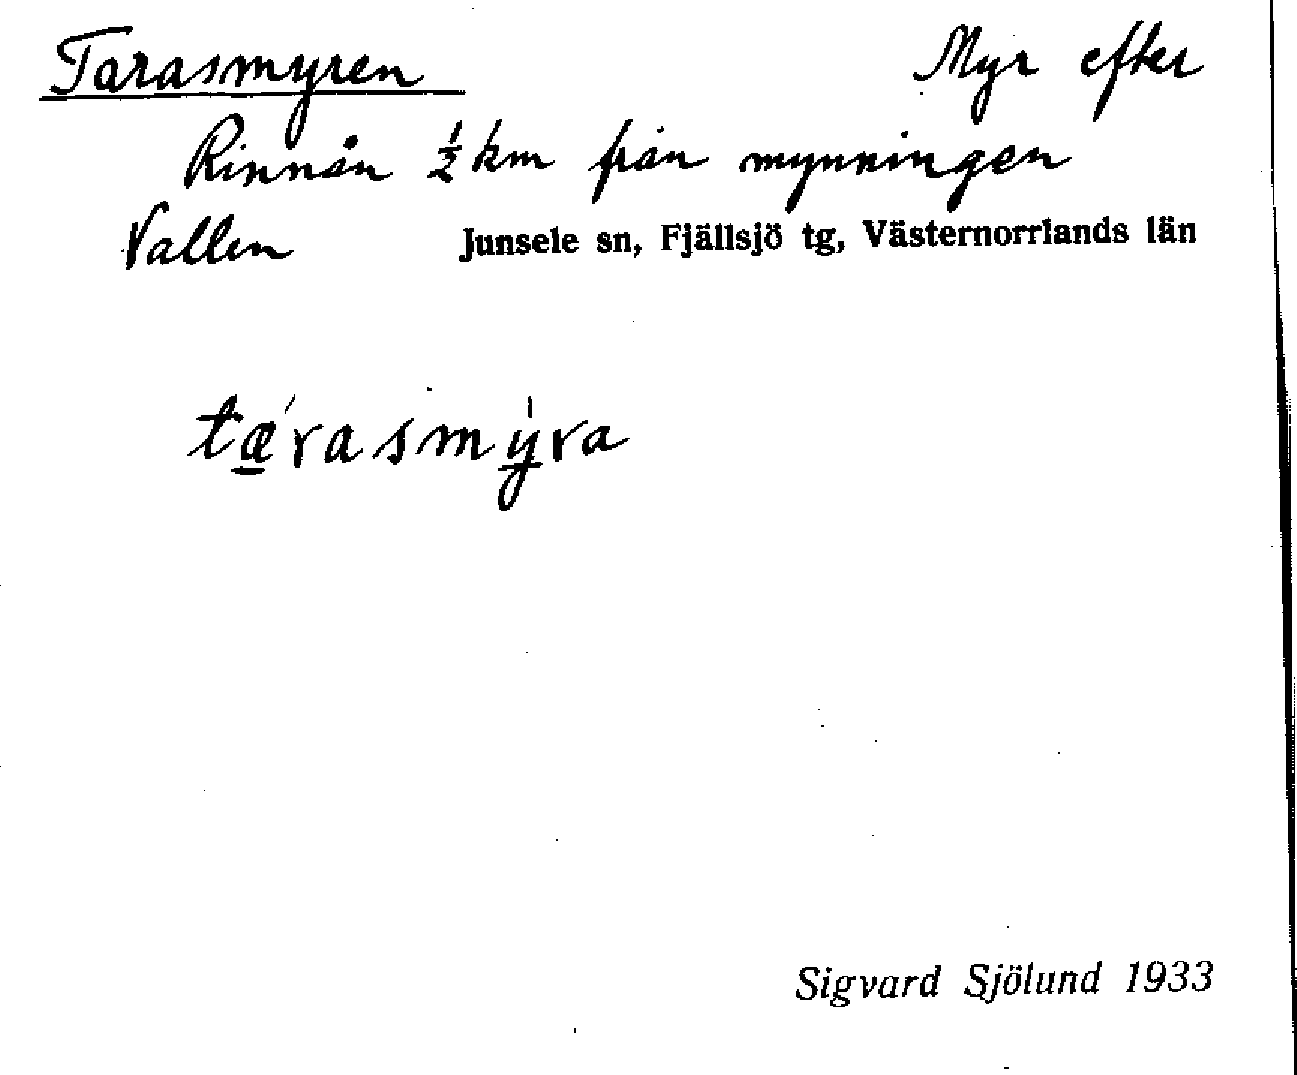 Tarasmyren Myr efter
Rinnån ½ km från mynningen
Vallen Junsele sn, Fjällsjö tg, Västernorrlands län
tǽ̲rasmy̲̍ra
Sigvard Sjölund 1933